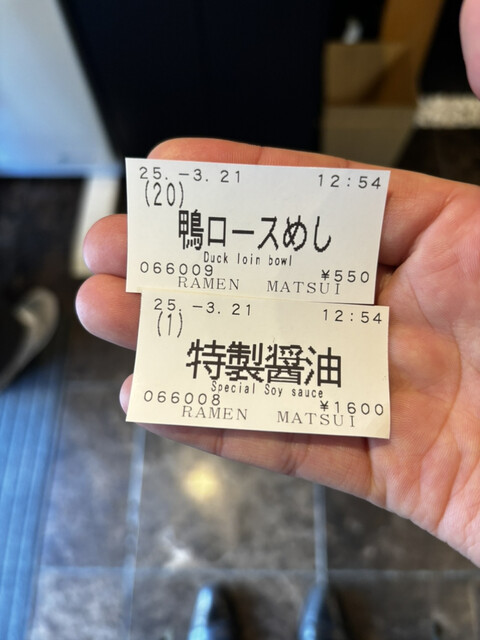 25.-3.21 12:54
(20)
鴨ロースめし
Duck loin bowl
066009 ¥550
RAMEN MATSUI
25.-3.21 12:54
(1)
特製醤油
Special Soy sauce
066008 ¥1600
RAMEN MATSUI